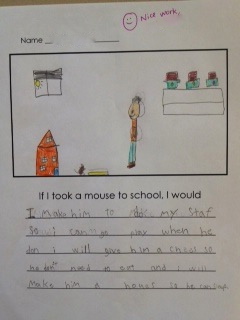 Nice work.
Name
If I took a mouse to school, I would
I make him to my staf
So i can go play when he
don i will give him a chees so
he don't need to eat and I will
make him a house so he can